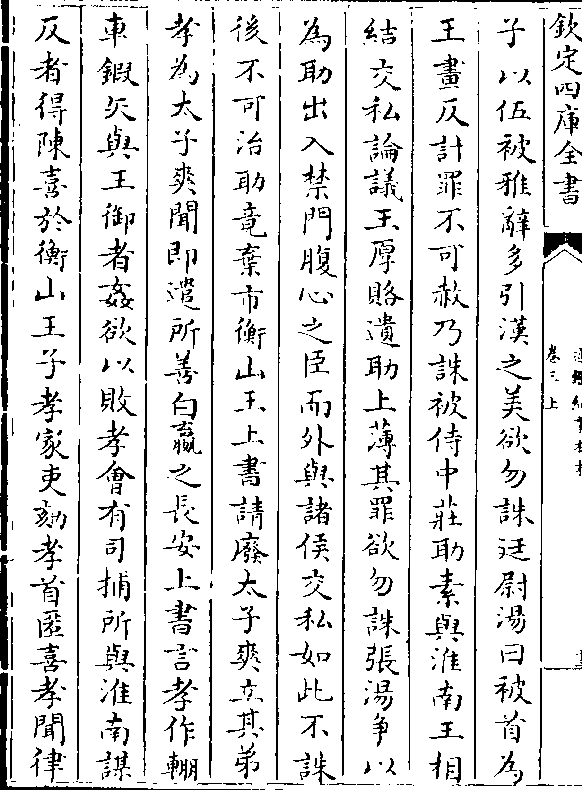 欽定四庫全書
卷三上
子以伍被雅辭多引漢之美欲勿誅廷尉湯曰被首為
王畫反計罪不可赦乃誅被侍中莊助素與淮南王相
結交私論議王厚賂遺助上薄其罪欲勿誅張湯爭以
為助出入禁門腹心之臣而外與諸侯交私如此不誅
後不可治助竟棄市衡山王上書請廢太子爽立其弟
孝為太子爽聞即遣所善白嬴之長安上書言孝作輣
車鍜矢與王御者姦欲以敗孝會有司捕所與淮南謀
反者得陳喜於衡山王子孝家吏劾孝首匿喜孝聞律